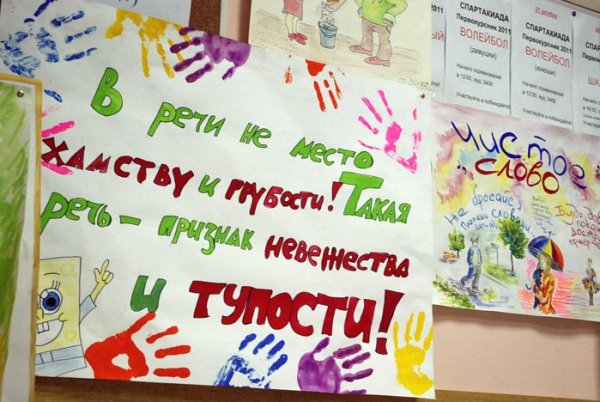 В речи не место
хамству и грубости! Такая
речь – признак невежества
и тупости!
СПАРТАКИАДА
Первокурсник 2011
ВОЛЕЙБОЛ
(девушки)
Начало соревнований
в 12:00, ауд. 3406
Участвуйте и побеждайте!
СПАРТАКИАДА
Первокурсник 2011
ВОЛЕЙБОЛ
(юноши)
Начало соревнований
в 12:00, ауд. 3406
Участвуйте и побеждайте!
чистое
слово
Не бросайся